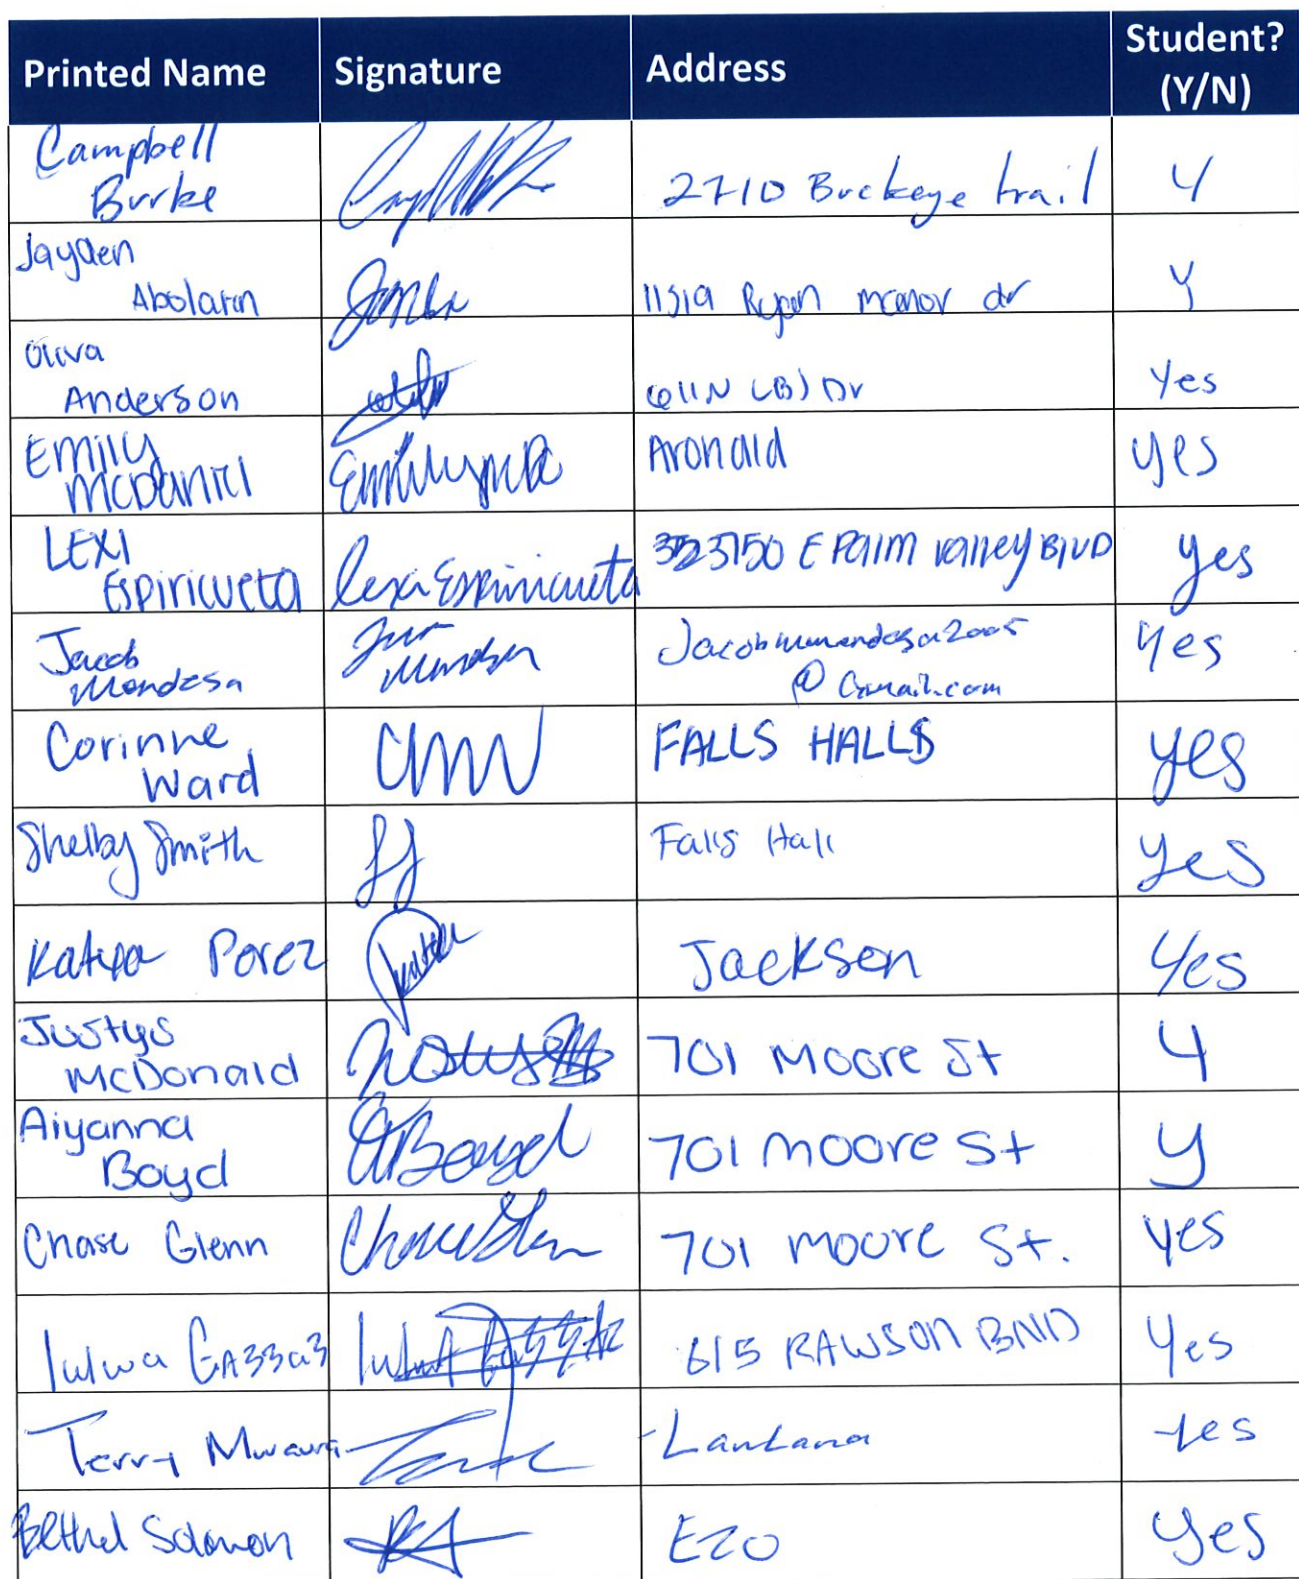 Printed Name Signature Address Student? (Y/N)
Campbell
Burke 2710 Buckeye trail Y
Jayden
Abolarin 11319 Ryan manor dr Y
Olivia
Anderson 611 N LBJ Dr Yes
Emily
McDaniel Aronald yes
LEXI
Espiricueta Lexi Espiricueta 3150 E Palm Valley BLVD yes
Jacob
Mendesa @ Gmail.com Yes
Corinne
Ward CMW FALLS HALLS yes
Shelby Smith SS Falls Hall yes
Perez Jackson Yes
Justys
McDonald 701 Moore St Y
Aiyanna
Boyd ABoyd 701 moore St Y
Chase Glenn Chase Glenn 701 moore St. yes
lulwa GA33a3 615 RAWSON Yes
Terry Mwaura Lantana Yes
Bethel Solomon yes